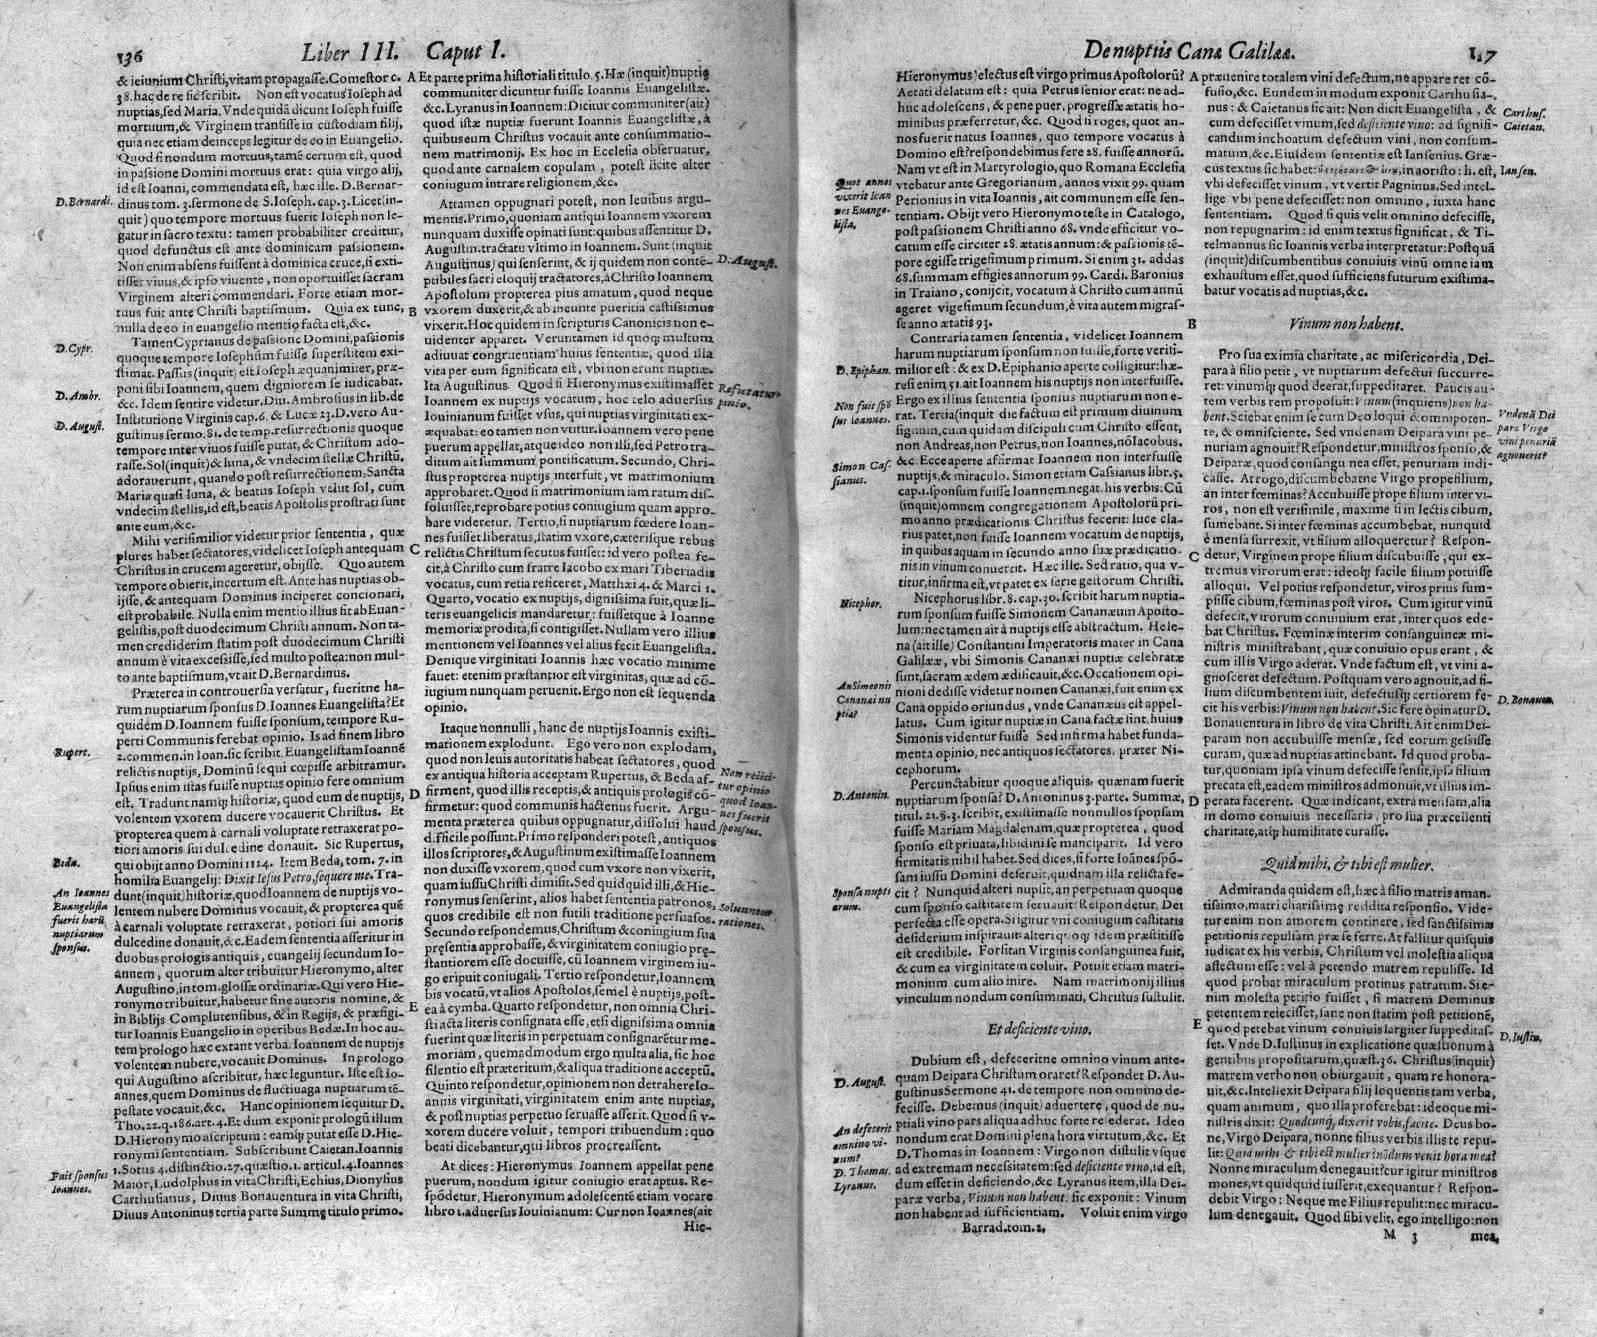 136 Liber III. Caput I.
& ieiunium Christi, vitam propagasse. Comestor c.
38. hac de re sic scribit. Non est vocatus Ioseph ad
nuptias, sed Maria. Vnde quidā dicunt Ioseph fuisse
mortuum, & Virginem transisse in custodiam filij,
quia nec etiam deinceps legitur de eo in Euangelio.
Quod si nondum mortuus, tamē certum est, quod
in passione Domini mortuus erat: quia virgo alij,
id est Ioanni, commendata est, hæc ille. D. Bernar-
dinus tom. 3. sermone de S. Ioseph. cap. 3. Licet (in-
quit) quo tempore mortuus fuerit Ioseph non le-
gatur in sacro textu: tamen probabiliter creditur,
quod defunctus est ante dominicam passionem.
Non enim absens fuissent à dominica cruce, si exti-
tisset viuus, & ipso viuente, non oportuisset sacram
Virginem alteri commendari. Forte etiam mor-
tuus fuit ante Christi baptismum. Quia ex tunc,
nulla de eo in euangelio mentio facta est, &c.
Tamen Cyprianus de passione Domini, passionis
quoque tempore Iosephum fuisse superstitem exi-
stimat. Passus (inquit) est Ioseph æquanimiter, præ-
poni sibi Ioannem, quem digniorem se iudicabat.
&c. Idem sentire videtur. Diu. Ambrosius in lib. de
Institutione Virginis cap. 6. & Lucæ 23. D. vero Au-
gustinus sermo. 81. de temp. resurrectionis quoque
tempore inter viuos fuisse putat, & Christum ado-
rasse. Sol (inquit) & luna, & vndecim stellæ Christū.
adorauerunt, quando post resurrectionem, Sancta
Maria quasi luna, & beatus Ioseph velut sol, cum
vndecim stellis, id est, beatis Apostolis prostrati sunt
ante eum, &c.
Mihi verisimilior videtur prior sententia, quæ
plures habet sectatores, videlicet Ioseph antequam
Christus in crucem ageretur, obijsse. Quo autem
tempore obierit, incertum est. Ante has nuptias ob-
ijsse, & antequam Dominus inciperet concionari,
est probabile. Nulla enim mentio illius fit ab Euan-
gelistis, post duodecimum Christi annum. Non ta-
men crediderim statim post duodecimum Christi
annum è vita excessisse, sed multo postea: non mul-
to ante baptismum, vt ait D. Bernardinus.
Præterea in controuersia versatur, fueritne ha-
rum nuptiarum sponsus D. Ioannes Euangelista? Et
quidem D. Ioannem fuisse sponsum, tempore Ru-
perti Communis ferebat opinio. Is ad finem libro
2. commen. in Ioan. sic scribit. Euangelistam Ioannē
relictis nuptijs, Dominū sequi cœpisse arbitramur.
Ipsius enim istas fuisse nuptias opinio fere omnium
est. Tradunt namq; historiæ, quod eum de nuptijs,
volentem vxorem ducere vocauerit Christus. Et
propterea quem à carnali voluptate retraxerat po-
tiori amoris sui dulcedine donauit. Sic Rupertus,
qui obijt anno Domini 1124. Item Beda, tom. 7. in
homilia Euangelij: Dixit Iesus Petro, sequere me. Tra-
dunt (inquit) historiæ, quod Ioannem de nuptijs vo-
lentem nubere Dominus vocauit, & propterea quē
à carnali voluptate retraxerat, potiori sui amoris
dulcedine donauit, &c. Eadem sententia asseritur in
duobus prologis antiquis, euangelij secundum Io-
annem, quorum alter tribuitur Hieronymo, alter
Augustino, in tom. glossæ ordinariæ. Qui vero Hie-
ronymo tribuitur, habetur sine autoris nomine, &
in Biblijs Complutensibus, & in Regijs, & præfigi-
tur Ioannis Euangelio in operibus Bedæ. In hoc au-
tem prologo hæc extant verba. Ioannem de nuptijs
volentem nubere, vocauit Dominus. In prologo
qui Augustino ascribitur, hæc leguntur. Iste est Io-
annes, quem Dominus de fluctiuaga nuptiarum tē-
pestate vocauit, &c. Hanc opinionem sequitur D.
Tho. 22. q. 186. art. 4. Et dum exponit prologū illum
D. Hieronymo ascriptum: eamq; putat esse D. Hie-
ronymi sententiam. Subscribunt Caietan. Ioannis
1. Sotus 4. distinctio. 27. quæstio. 1. articul. 4. Ioannes
Maior, Ludolphus in vita Christi, Echius, Dionysius
Carthusianus, Diuus Bonauentura in vita Christi,
Diuus Antoninus tertia parte Summę titulo primo.
D. Bernardi.
D. Cypr.
D. Ambr.
D. August.
Rupert.
Beda.
An Ioannes
Euangelista
fuerit harū
nuptiarum
sponsus.
Fuit sponsus
Ioannes.
A
B
C
D
E
Et parte prima historiali titulo. 5. Hæ (inquit) nuptię
communiter dicuntur fuisse Ioannis Euangelistæ.
&c. Lyranus in Ioannem: Dicitur communiter (ait)
quod istæ nuptiæ fuerunt Ioannis Euangelistæ, à
quibus eum Christus vocauit ante consummatio-
nem matrimonij. Ex hoc in Ecclesia obseruatur,
quod ante carnalem copulam, potest licite alter
coniugum intrare religionem, &c.
Attamen oppugnari potest, non leuibus argu-
mentis. Primo, quoniam antiqui Ioannem vxorem
nunquam duxisse opinati sunt: quibus assentitur D.
Augustin. tractatu vltimo in Ioannem. Sunt (inquit
Augustinus) qui senserint, & ij quidem non contē-
ptibiles sacri eloquij tractatores, à Christo Ioannem
Apostolum propterea pius amatum, quod neque
vxorem duxerit, & ab ineunte pueritia castissimus
vixerit. Hoc quidem in scripturis Canonicis non e-
uidenter apparet. Veruntamen id quoq; multum
adiuuat congruentiam huius sententiæ, quod illa
vita per eum significata est, vbi non erunt nuptiæ.
Ita Augustinus. Quod si Hieronymus existimasset
Ioannem ex nuptijs vocatum, hoc telo aduersus
Iouinianum fuisset vsus, qui nuptias virginitati ex-
æquabat: eo tamen non vtitur. Ioannem vero pene
puerum appellat, atque ideo non illi, sed Petro tra-
ditum ait summum pontificatum. Secundo, Chri-
stus propterea nuptijs interfuit, vt matrimonium
approbaret. Quod si matrimonium iam ratum dis-
soluisset, reprobare potius coniugium quam appro-
bare videretur. Tertio, si nuptiarum fœdere Ioan-
nes fuisset liberatus, statim vxore, cæterisque rebus
relictis Christum secutus fuisset: id vero postea fe-
cit, à Christo cum fratre Iacobo ex mari Tiberiadis
vocatus, cum retia reficeret, Matthæi 4. & Marci 1.
Quarto, vocatio ex nuptijs, dignissima fuit, quæ li-
teris euangelicis mandaretur: fuissetque à Ioanne
memoriæ prodita, si contigisset. Nullam vero illius
mentionem vel Ioannes vel alius fecit Euangelista.
Denique virginitati Ioannis hæc vocatio minime
fauet: etenim præstantior est virginitas, quæ ad cō-
iugium nunquam peruenit. Ergo non est sequenda
opinio.
Itaque nonnulli, hanc de nuptijs Ioannis existi-
mationem explodunt. Ego vero non explodam,
quod non leuis autoritatis habeat sectatores, quod
ex antiqua historia acceptam Rupertus, & Beda af-
firment, quod illis receptis, & antiquis prologis cō-
firmetur: quod communis hactenus fuerit. Argu-
menta præterea quibus oppugnatur, dissolui haud
difficile possunt. Primo responderi potest, antiquos
illos scriptores, & Augustinum existimasse Ioannem
non duxisse vxorem, quod cum vxore non vixerit,
quam iussu Christi dimisit. Sed quidquid illi, & Hie-
ronymus senserint, alios habet sententia patronos,
quos credibile est non futili traditione persuasos.
Secundo respondemus, Christum & coniugium sua
pręsentia approbasse, & virginitatem coniugio prę-
stantiorem esse docuisse, cū Ioannem virginem iu-
go eripuit coniugali. Tertio respondetur, Ioannem
bis vocatū, vt alios Apostolos, semel è nuptijs, post-
ea à cymba. Quarto respondetur, non omnia Chri-
sti acta literis consignata esse, etsi dignissima omnia
fuerint quæ literis in perpetuam consignarētur me-
moriam, quemadmodum ergo multa alia, sic hoc
silentio est præteritum, & aliqua traditione acceptū.
Quinto respondetur, opinionem non detrahere Io-
annis virginitati, virginitatem enim ante nuptias,
& post nuptias perpetuo seruasse asserit. Quod si v-
xorem ducere voluit, tempori tribuendum: quo
beati dicebantur, qui libros procreassent.
At dices: Hieronymus Ioannem appellat pene
puerum, nondum igitur coniugio erat aptus. Re-
spōdetur, Hieronymum adolescentē etiam vocare
libro 1. aduersus Iouinianum: Cur non Ioannes (ait
Hie-
D. August.
Refertatur
opinio.
Non reijci-
tur opinio
quod Ioan-
nes fuerit
sponsus.
Soluuntur
rationes.
De nuptiis Canæ Galilææ. 137
Hieronymus) electus est virgo primus Apostolorū?
Aetati delatum est: quia Petrus senior erat: ne ad-
huc adolescens, & pene puer, progressæ ætatis ho-
minibus præferretur, &c. Quod si roges, quot an-
nos fuerit natus Ioannes, quo tempore vocatus à
Domino est? respondebimus fere 28. fuisse annorū.
Nam vt est in Martyrologio, quo Romana Ecclesia
vtebatur ante Gregorianum, annos vixit 99. quam
Perionius in vita Ioannis, ait communem esse sen-
tentiam. Obijt vero Hieronymo teste in Catalogo,
post passionem Christi anno 68. vnde efficitur vo-
catum esse circiter 28. ætatis annum: & passionis tē-
pore egisse trigesimum primum. Si enim 31. addas
68. summam effigies annorum 99. Cardi. Baronius
in Traiano, conijcit, vocatum à Christo cum annū
ageret vigesimum secundum, è vita autem migras-
se anno ætatis 93.
Contraria tamen sententia, videlicet Ioannem
harum nuptiarum sponsum non fuisse, forte verisi-
milior est: & ex D. Epiphanio aperte colligitur: hæ-
resi enim 51. ait Ioannem his nuptijs non interfuisse.
Ergo ex illius sententia sponsus nuptiarum non e-
rat. Tertia (inquit) die factum est primum diuinum
signum, cum quidam discipuli cum Christo essent,
non Andreas, non Petrus, non Ioannes, nō Iacobus.
&c. Ecce aperte affirmat Ioannem non interfuisse
nuptijs, & miraculo. Simon etiam Cassianus libr. 5.
cap. 1. sponsum fuisse Ioannem negat. his verbis: Cū
(inquit) omnem congregationem Apostolorū pri-
mo anno prædicationis Christus fecerit: luce cla-
rius patet, non fuisse Ioannem vocatum de nuptijs,
in quibus aquam in secundo anno suæ prædicatio-
nis in vinum conuertit. Hæc ille. Sed ratio, qua v-
titur, infirma est, vt patet ex serie gestorum Christi.
Nicephorus libr. 8. cap. 30. scribit harum nuptia-
rum sponsum fuisse Simonem Cananæum Aposto-
lum: nec tamen ait à nuptijs esse abstractum. Hele-
na (ait ille) Constantini Imperatoris mater in Cana
Galilææ, vbi Simonis Cananæi nuptiæ celebratæ
sunt, sacram ædem ædificauit, &c. Occasionem opi-
nioni dedisse videtur nomen Cananæi, fuit enim ex
Cana oppido oriundus, vnde Cananæus est appel-
latus. Cum igitur nuptiæ in Cana factæ sint, huius
Simonis videntur fuisse. Sed infirma habet funda-
menta opinio, nec antiquos sectatores, præter Ni-
cephorum.
Percunctabitur quoque aliquis, quænam fuerit
nuptiarum sponsa? D. Antoninus 3. parte. Summæ,
titul. 21. §. 3. scribit, existimasse nonnullos sponsam
fuisse Mariam Magdalenam, quæ propterea, quod
sponso est priuata, libidini se manciparit. Id vero
firmitatis nihil habet. Sed dices, si forte Ioānes spō-
sam iussu Domini deseruit, quidnam illa relicta fe-
cit? Nunquid alteri nupsit, an perpetuam quoque
cum sponso castitatem seruauit? Respondetur, Dei
perfecta esse opera. Si igitur vni coniugum castitatis
desiderium inspirauit: alteri quoq; idem præstitisse
est credibile. Forsitan Virginis consanguinea fuit,
& cum ea virginitatem coluit. Potuit etiam matri-
monium cum alio inire. Nam matrimonij illius
vinculum nondum consummati, Christus sustulit.
Et deficiente vino.
Dubium est, defeceritne omnino vinum ante-
quam Deipara Christum oraret? Respondet D. Au-
gustinus Sermone 41. de tempore non omnino de-
fecisse. Debemus (inquit) aduertere, quod de nu-
ptiali vino pars aliqua adhuc forte resederat. Ideo
nondum erat Domini plena hora virtutum, &c. Et
D. Thomas in Ioannem: Virgo non distulit vsque
ad extremam necessitatem: sed deficiente vino, id est,
dum esset in deficiendo, &c. Lyranus item, illa Dei-
paræ verba, Vinum non habent. sic exponit: Vinum
non habent ad sufficientiam. Voluit enim virgo
Barrad. tom. 2.
Quot annos
vixerit Ioan
nes Euange-
lista.
D. Epiphan.
Non fuit spō
sus Ioannes.
Simon Cas-
sianus.
Nicephor.
An Simeonis
Cananæi nu
ptiæ?
D. Antonin.
Sponsa nupti
arum.
D. August.
An defecerit
omnino vi-
num?
D. Thomas.
Lyranus.
A
B
C
D
E
præuenire totalem vini defectum, ne appareret cō-
fusio, &c. Eundem in modum exponit Carthusia-
nus: & Caietanus sic ait: Non dicit Euangelista, &
cum defecisset vinum, sed deficiente vino: ad signifi-
candum inchoatum defectum vini, non consum-
matum, &c. Eiusdem sententiæ est Iansenius. Græ-
cus textus sic habet: in aoristo: h. est,
vbi defecisset vinum, vt vertit Pagninus. Sed intel-
lige vbi pene defecisset: non omnino, iuxta hanc
sententiam. Quod si quis velit omnino defecisse,
non repugnarim: id enim textus significat, & Ti-
telmannus sic Ioannis verba interpretatur: Postquā
(inquit) discumbentibus conuiuis vinū omne iam
exhaustum esset, quod sufficiens futurum existima-
batur vocatis ad nuptias, &c.
Vinum non habent.
Pro sua eximia charitate, ac misericordia, Dei-
para à filio petit, vt nuptiarum defectui succurre-
ret: vinumq; quod deerat, suppeditaret. Paucis au-
tem verbis rem proposuit: Vinum (inquiens) non ha-
bent. Sciebat enim se cum Deo loqui & omnipoten-
te, & omnisciente. Sed vndenam Deipara vini pe-
nuriam agnouit? Respondetur, ministros sponso, &
Deiparæ, quod consanguinea esset, penuriam indi-
casse. At rogo, discumbebatne Virgo prope filium,
an inter fœminas? Accubuisse prope filium inter vi-
ros, non est verisimile, maxime si in lectis cibum,
sumebant. Si inter fœminas accumbebat, nunquid
è mensa surrexit, vt filium alloqueretur? Respon-
detur, Virginem prope filium discubuisse, qui ex-
tremus virorum erat: ideoq; facile filium potuisse
alloqui. Vel potius respondetur, viros prius sum-
psisse cibum, fœminas post viros. Cum igitur vinū
defecit, virorum conuiuium erat, inter quos ede-
bat Christus. Fœminæ interim consanguineæ mi-
nistris ministrabant, quæ conuiuio opus erant, &
cum illis Virgo aderat. Vnde factum est, vt vini a-
gnosceret defectum. Postquam vero agnouit, ad fi-
lium discumbentem iuit, defectusq; certiorem fe-
cit his verbis: Vinum non habent. Sic fere opinatur D.
Bonauentura in libro de vita Christi. Ait enim Dei-
param non accubuisse mensæ, sed eorum gessisse
curam, quæ ad nuptias attinebant. Id quod proba-
tur, quoniam ipsa vinum defecisse sensit, ipsa filium
precata est, eadem ministros admonuit, vt illius im-
perata facerent. Quæ indicant, extra mensam, alia
in domo conuiuis necessaria, pro sua præcellenti
charitate, atq; humilitate curasse.
Quid mihi, & tibi est mulier.
Admiranda quidem est, hæc à filio matris aman-
tissimo, matri charissimę reddita responsio. Vide-
tur enim non amorem continere, sed sanctissimæ
petitionis repulsam præ se ferre. At fallitur quisquis
iudicat ex his verbis, Christum vel molestia aliqua
affectum esse: vel à petendo matrem repulisse. Id
quod probat miraculum protinus patratum. Si e-
nim molesta petitio fuisset, si matrem Dominus
petentem reiecisset, sane non statim post petitionē,
quod petebat vinum conuiuis largiter suppeditas-
set. Vnde D. Iustinus in explicatione quæstionum à
gentibus propositarum, quæst. 36. Christus (inquit)
matrem verbo non obiurgauit, quam re honora-
uit, &c. Intellexit Deipara filij loquentis tam verba,
quam animum, quo illa proferebat: ideoque mi-
nistris dixit: Quodcunq; dixerit vobis, facite. Deus bo-
ne, Virgo Deipara, nonne filius verbis illis te repu-
lit: Quid mihi & tibi est mulier? nōdum venit hora mea?
Nonne miraculum denegauit? cur igitur ministros
mones, vt quidquid iusserit, exequantur? Respon-
debit Virgo: Neque me Filius repulit: nec miracu-
lum denegauit. Quod sibi velit, ego intelligo: non
M 3 mea,
Carthus.
Caietan.
Iansen.
Vndenā Dei
para Virgo
vini penuriā
agnouerit?
D. Bonauen.
D. Iustin.